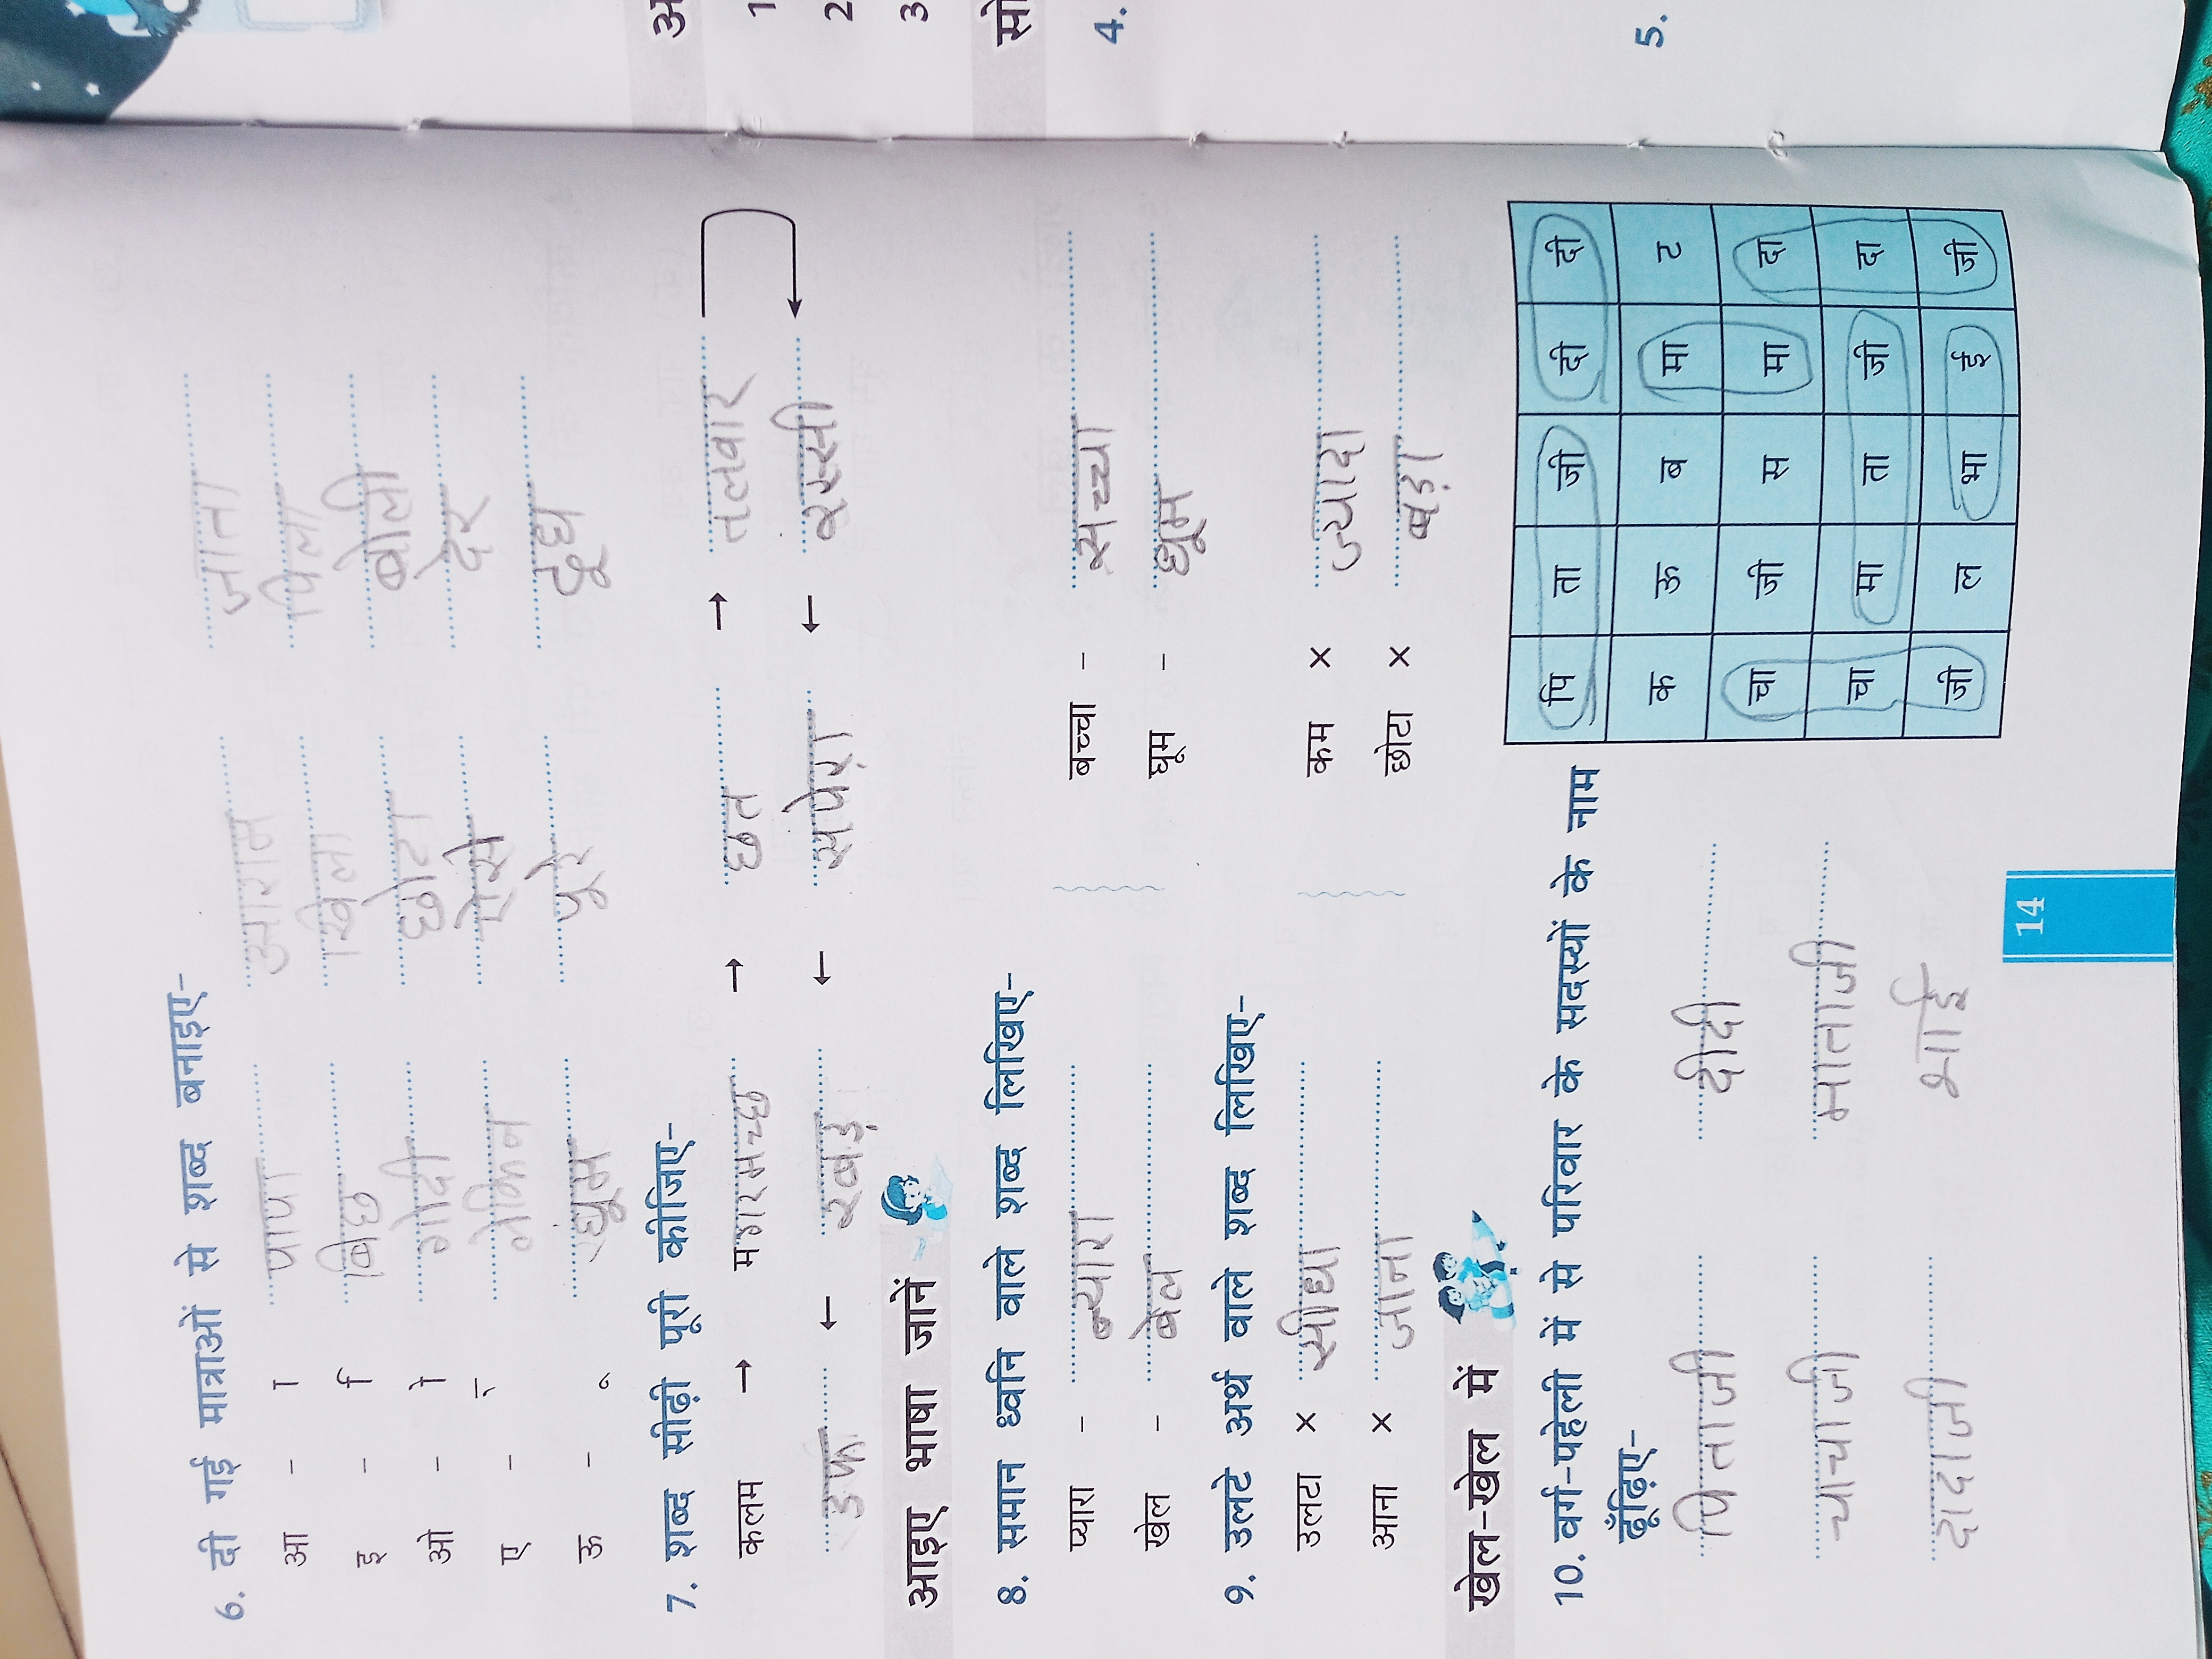 6. दी गई मात्राओं से शब्द बनाइए-
आ - ा पापा आराम जाना
इ - ि बिछ खिला पिला
ओ - ो गोदी छोटा बोली
ए - े लेकिन तेरी देर
ऊ - ू धूम पूरे दूध
7. शब्द सीढ़ी पूरी कीजिए-
कलम → मगरमच्छ → छत → तलवार
डफ ← रबड़ ← सपेरा ← रस्सी
आइए भाषा जानें
8. समान ध्वनि वाले शब्द लिखिए-
प्यारा - न्यारा बच्चा - सच्चा
खेल - बेल घूम - धूम
9. उलटे अर्थ वाले शब्द लिखिए-
उलटा × सीधा कम × ज्यादा
आना × जाना छोटा × बड़ा
खेल-खेल में
10. वर्ग-पहेली में से परिवार के सदस्यों के नाम
ढूँढ़िए-
पिताजी दीदी
चाचाजी माताजी
दादाजी भाई
पि ता जी दी दी
क ऊ ब मा ट
चा जी स मा दा
चा मा ता जी दा
जी ल भा ई जी
14
अ
1
2
3
सो
4.
5.